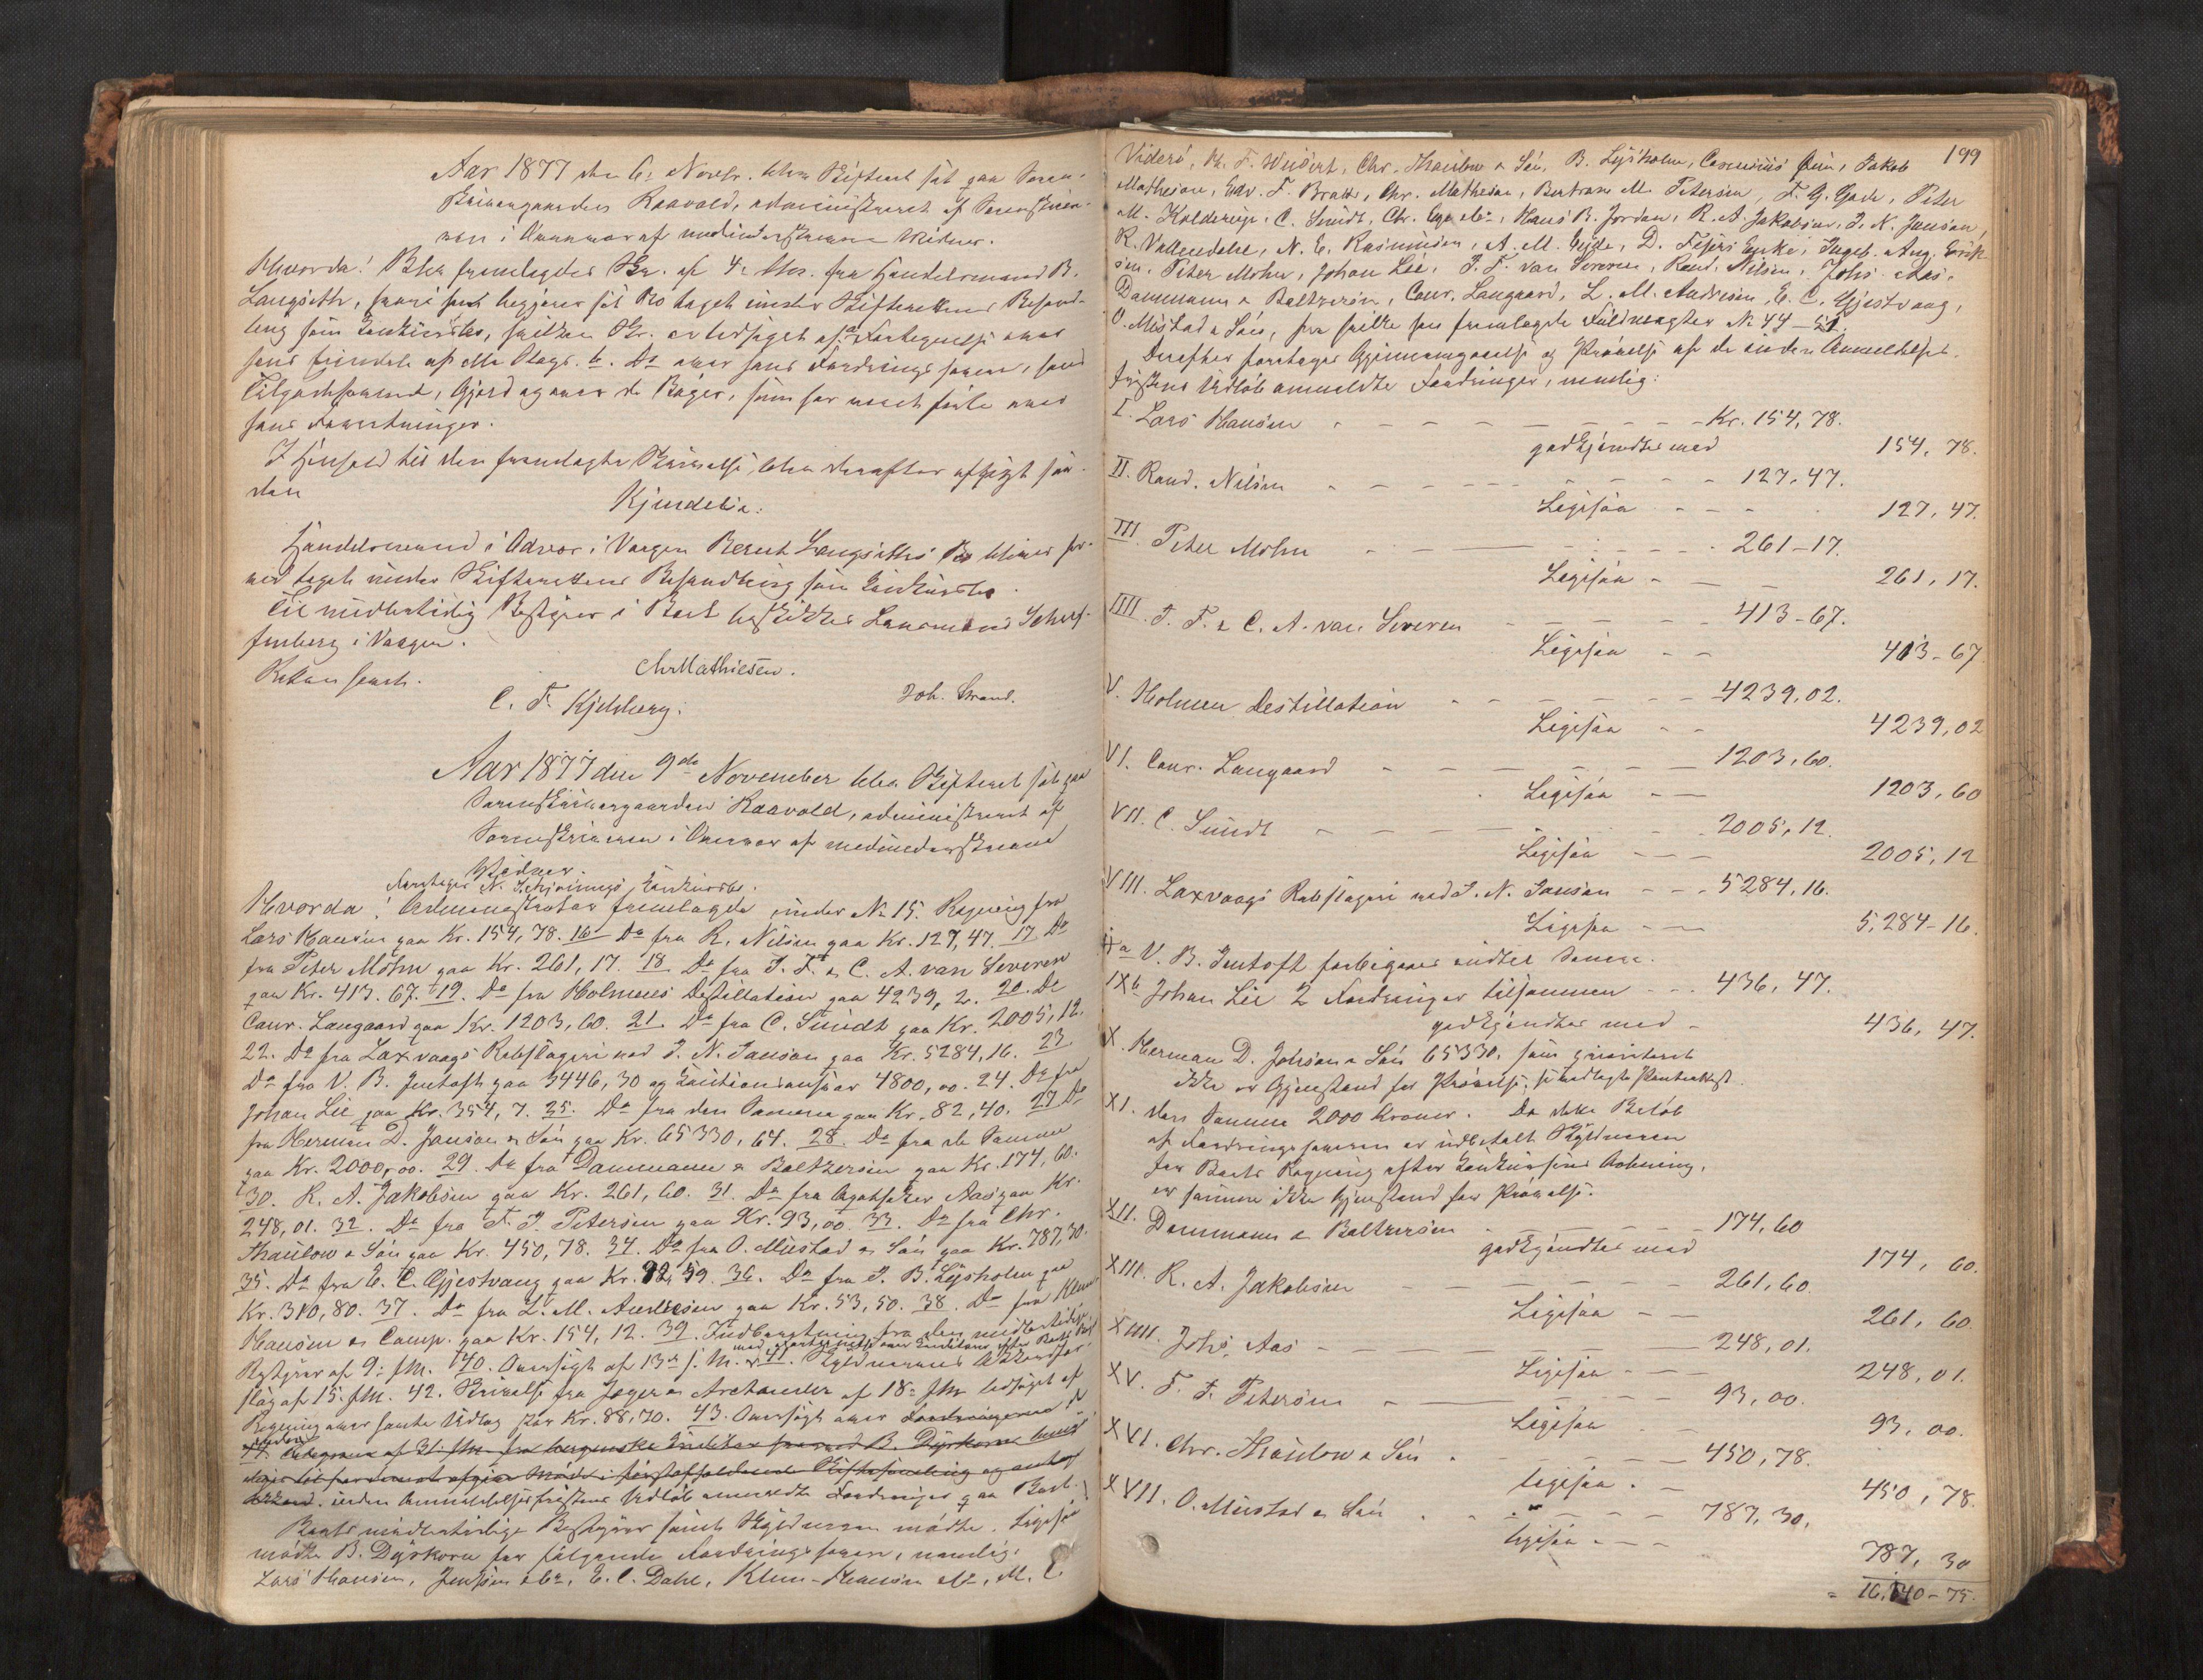 Aar 1877 den 6. Novbr. blev Skifteret sat paa Soren-
skrivergaarden Raavold, administreret af Sorenskriver-
en i Overvær af medunderskrevne Vidner.
Hvorda! Blev fremlagdes Skr. af 4. ds. fra Handelsmand B.
Langseth, hvori han begjærer sit Bo taget under Skifterettens Behand-
ling som Konkursbo, hvilken Skr. er ledsaget af Fortegnelse over
hans Eiendele af alle Slags. b. Do over hans Fordringshavere, hans
Tilgodehavende, Gjæld og over de Bøger, som han
hans Forretninger.
I Henhold til den fremlagte Skrivelse, blev derefter afsagt saa-
dan
Kjendelse:
Handelsmand i Vaagen Bernt Langseths Bo bliver her-
ved taget under Skifterettens Behandling som Konkursbo.
Til midlertidig Bestyrer i Boet beskikkes Lensmand
i Vaagen.
Retten hævet.
Chr Mathiesen.
C. F. Kjelsberg.
Joh. Strand.
Aar 1877 den 9de November blev Skifteret sat paa
Sorenskrivergaarden Raavold, administreret af
Sorenskriveren i Overvær af medunderskrevne
Vidner.
Foretages N. Konkursbo.
Hvorda! Administrator fremlagde under No 15. Regning fra
Lars Hansen paa Kr. 154,78. 16 Do fra R. Nilsen paa Kr. 127,47. 17 Do
fra Peter Mohn paa Kr. 261,17. 18 Do fra J. F. & C. A. van Severen
paa Kr. 413.67. 19. Do fra Holmens Destillation paa 4239,2. 20. Do
Conr. Langaard paa Kr. 1203,60. 21 Do fra C. Sundt paa Kr. 2005,12.
22. Do fra Laxevaags Rebslageri ved J. N. Janson paa Kr. 5284,16. 23
Do fra V. B. paa 3446,30 og Kautionsansvar 4800,00. 24. Do fra
Johan Lie paa Kr. 354,7. 25. Do fra den Samme paa Kr. 82,40. 27 Do
fra Herman D. Janson & Søn paa Kr. 65330,64. 28. Do fra de Samme
paa Kr. 2000,00. 29. Do fra Dammann & Baltzersen paa Kr. 174,60.
30. R. A. Jakobsen paa Kr. 261,60. 31. Do fra Apotheker Aas paa Kr.
248,01. 32. Do fra F. J. Petersen paa Kr. 93,00. 33. Do fra Chr.
Thaulow & Søn paa Kr. 450,78. 34. Do fra O. Mustad & Søn paa Kr. 787,30.
35. Do fra E. C. Gjestvang paa Kr. 36. Do fra J. B. Lysholm paa
Kr. 310,80. 37. Do fra L. M. Andresen paa Kr. 53,50. 38. Do fra Klem
Hansen & Comp. paa Kr. 154,12. 39. Indberetning fra den midlertidige
Bestyrer af 9. f.M. 40. Oversigt af 13de f. M. 41. Skyldnerens Akkordfor-
slag af 15. f.M. 42. Skrivelse fra Jæger & af 18. f.M. ledsaget af
Regning over havte Udlæg stor Kr. 88,70. 43. Oversigt over Fordringerne
44. af 31. f.M. fra bergenske Kreditorer B. Dyrkorn
inden Anmeldelsesfristens Udløb anmeldte Fordringer paa Boet.
Boets midlertidige Bestyrer samt Skyldneren mødte. Ligesaa
mødte B. Dyrkorn for følgende Fordringshavere, nemlig:
Lars Hansen, Jensen & Co, E. C. Dahl, Klem-Hansen & Co, M. E.
199
Chr. Thaulow & Søn, B. Lysholm, Jakob
Mathesen, Edv. F. Chr. Mathesen, Bertram M. Petersen, F. G. Gade, Peter
M. Kolderup, C. Sundt, Hans B. Jordan, R. A. Jakobsen, J. N. Janson,
R. Vallendahl, N. E. Rasmussen, A. M. D. Enke, Ingeb. Aug. Erik-
sen, Peter Mohn, Johan Lie, J. F. van Severen, Rand. Nilsen, Johs. Aas,
Dammann & Baltzersen, Conr. Langaard, L. M. Andresen, E. C. Gjestvang,
O. Mustad & Søn, fra hvilke han fremlagde Fuldmagter No 44-51.
Derefter foretoges Gjennemgaaelse og Prøvelse af de inden Anmeldelses-
fristens Udløb anmeldte Fordringer, nemlig:
I. Lars Hansen - - - Kr. 154,78.
godkjendtes med 154,78.
II. Rand. Nilsen - - - 127,47.
Ligesaa - - 127,47.
III. Peter Mohn - - - 261-17.
Ligesaa - - 261,17.
IIII. J. F. & C. A. van Severen - - 413-67.
Ligesaa - - 413-67
V. Holmen Destillation - - - 4239,02.
Ligesaa - - 4239,02
VI. Conr. Langaard - - - 1203,60.
Ligesaa - - 1203,60
VII. C. Sundt - - - 2005,12.
Ligesaa - - 2005,12
VIII. Laxvaags Rebslageri ved J. N. Janson - - 5284,16.
Ligesaa - - 5,284-16.
IXa V. B. forbigaaes indtil Senere.
IXb Johan Lie 2 Fordringer tilsammen - - 436,47.
godkjendtes med - 436,47.
X. Herman D. Johson & Søn 65330, som prioriteret
ikke er Gjenstand for Prøvelse,
XI. den Samme 2000 Kroner. Da dette Beløb
af Fordringshaveren er udbetalt Skyldneren
for Boets Regning efter Konkursens Aabning,
er samme ikke Gjenstand for Prøvelse.
XII. Dammann & Baltzersen - - - 174,60
godkjendtes med 174,60.
XIII. R. A. Jakobsen - - - 261,60.
Ligesaa - - 261,60.
XIIII. Johs. Aas - - - 248,01.
Ligesaa - - 248,01.
XV. F. J. Petersen - - - 93,00.
Ligesaa 93,00.
XVI. Chr. Thaulow & Søn - - - 450,78.
Ligesaa 450,78.
XVII. O. Mustad & Søn - - - 787,30.
Ligesaa - - 787,30